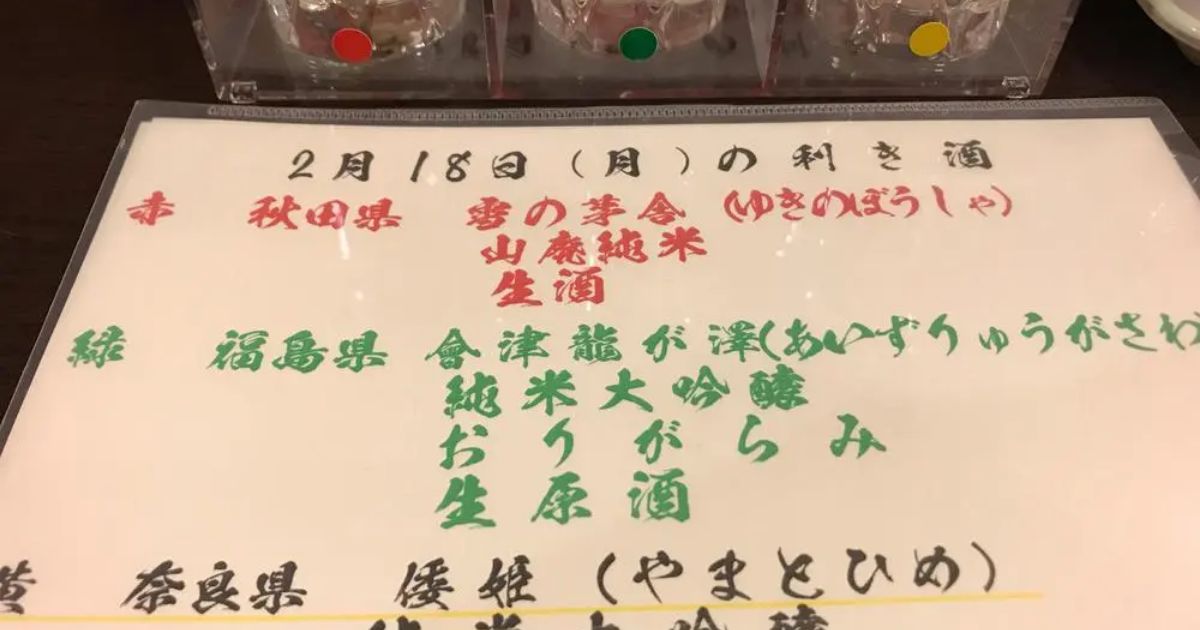 2月18日(月)の利き酒
赤 秋田県 雪の茅舎(ゆきのぼうしゃ)
山廃純米
生酒
緑 福島県 會津龍が澤(あいずりゅうがさわ
純米大吟醸
おりがらみ
生原酒
黄 奈良県 倭姫(やまとひめ)
純米大吟醸